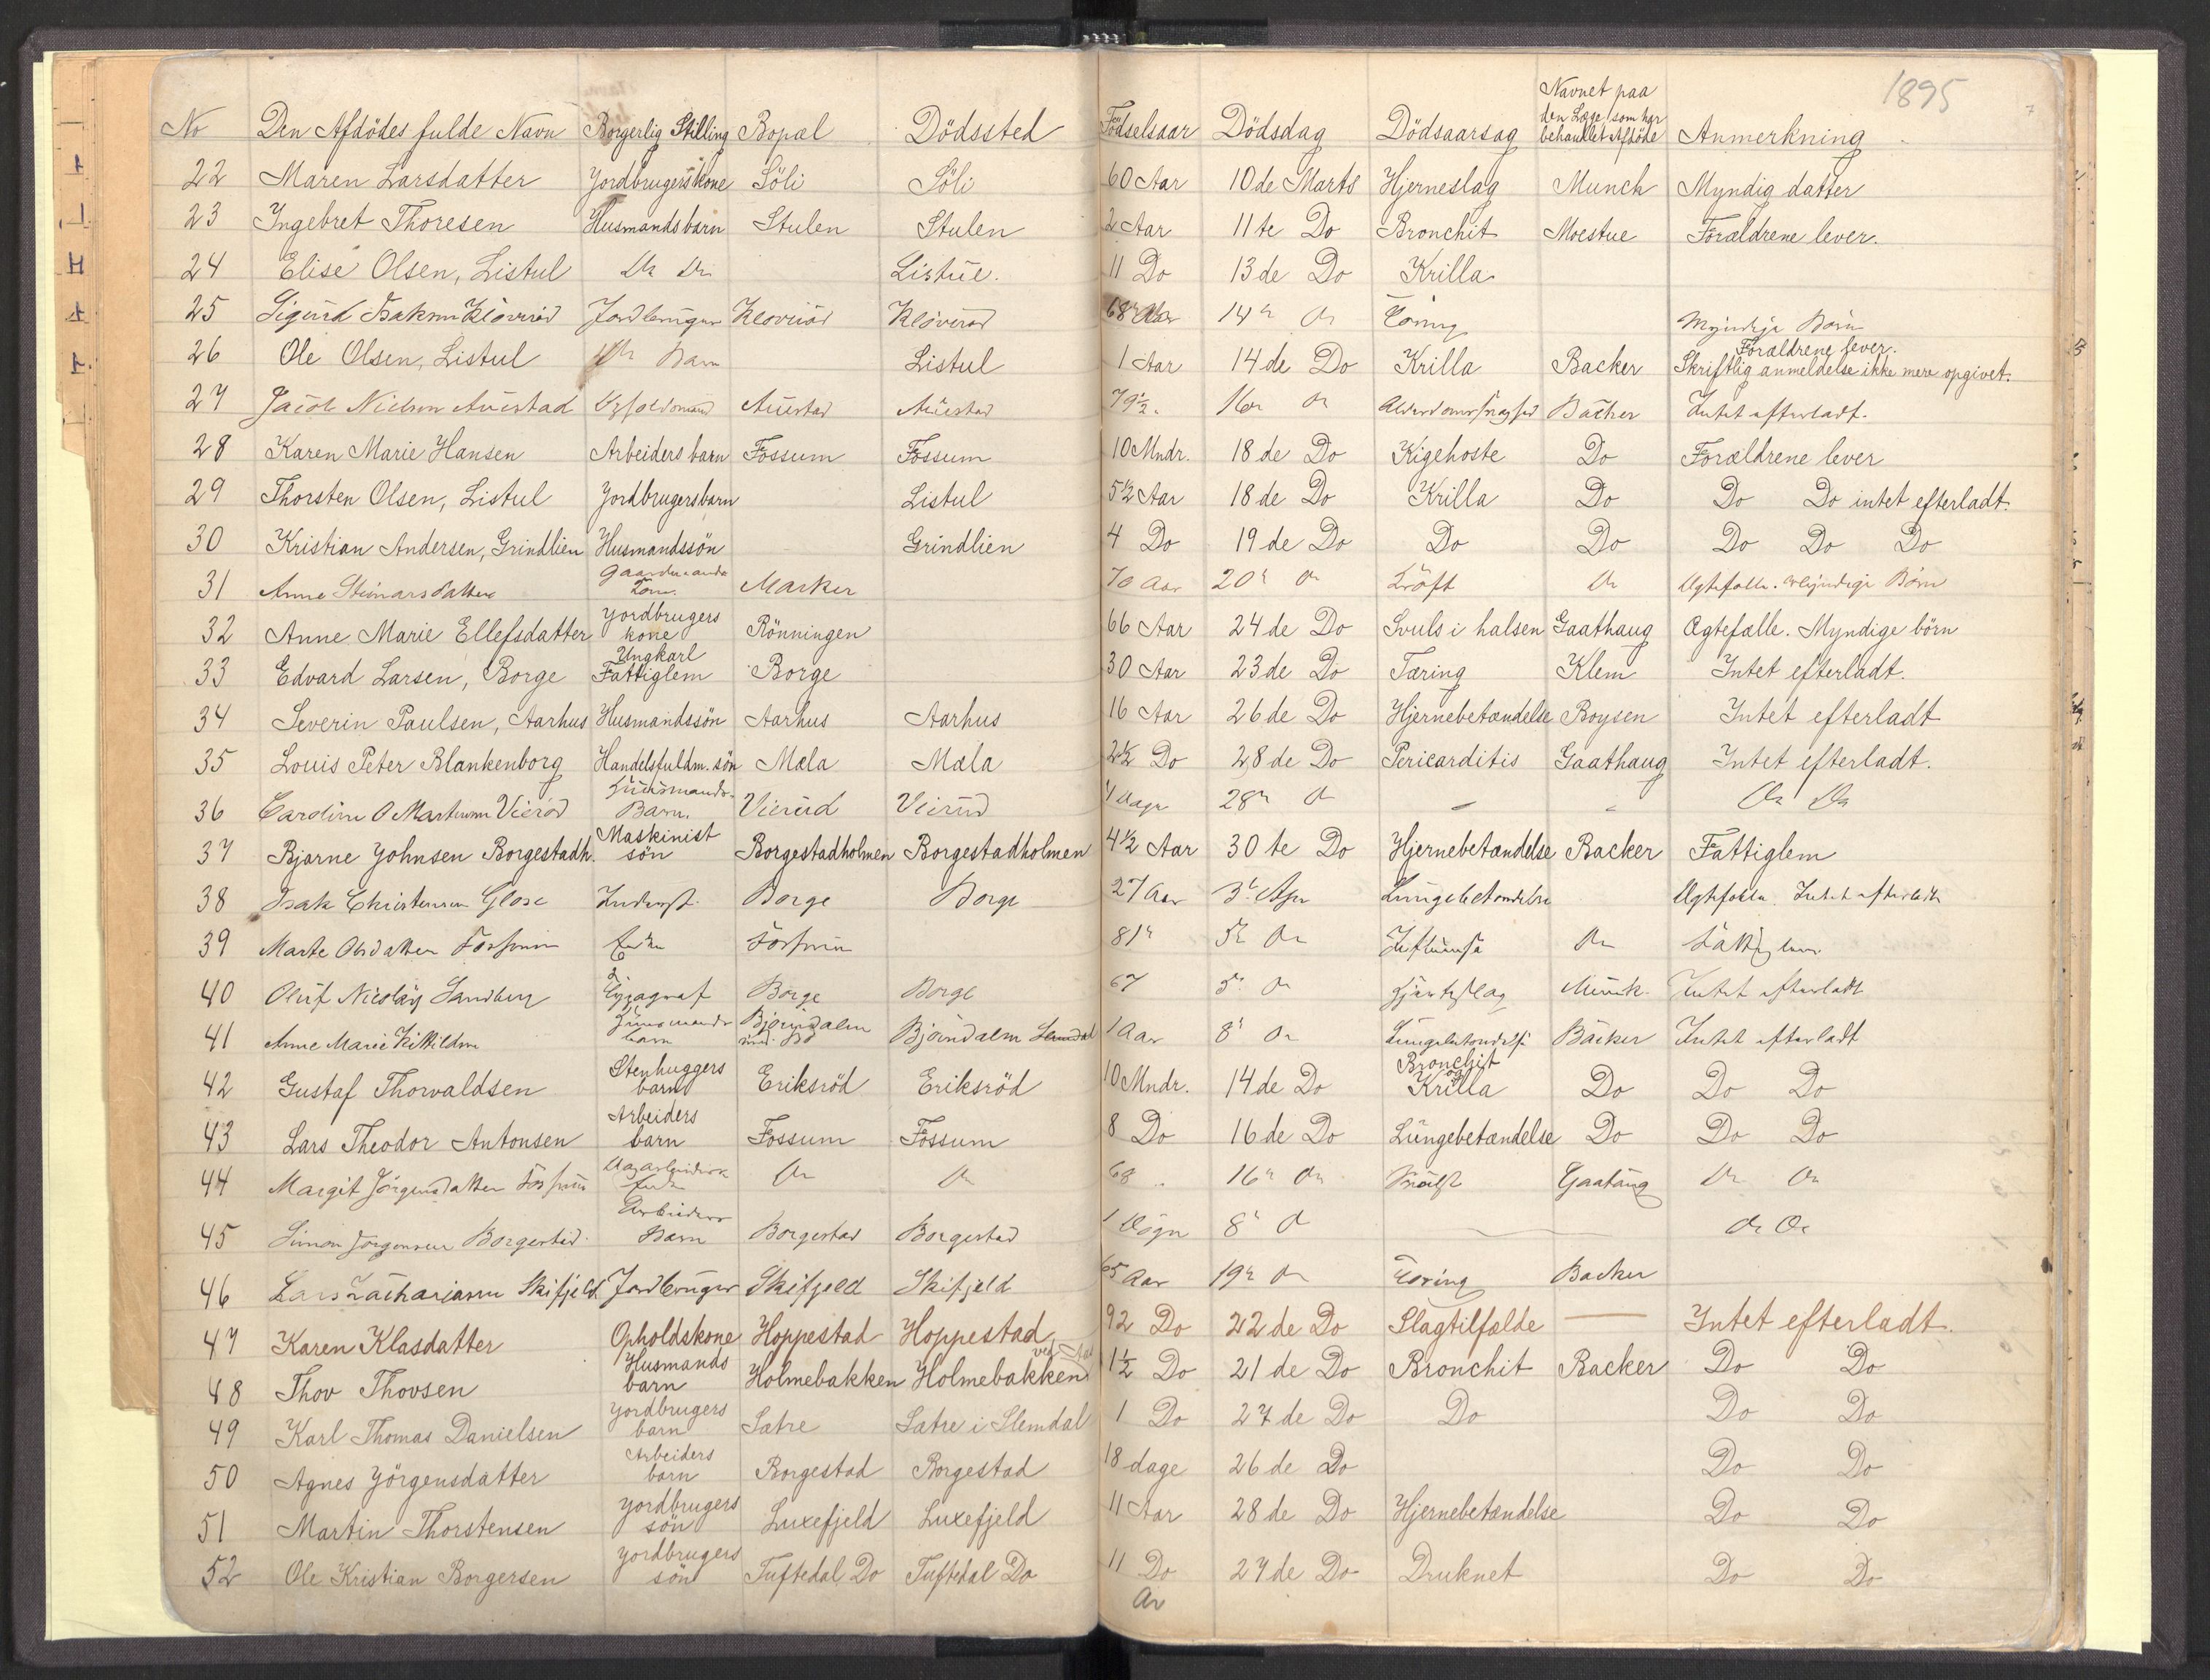 1895
No Den Afdödes fulde Navn Borgerlig Stilling Bopæl Dödssted Födselsaar Dödsdag Dödsaarsag Navnet paa den Læge som har behandlet Afdöde Anmerkning
22 Maren Larsdatter Jordbrugerskone Söli Söli 60 Aar 10de Marts Hjerneslag Munch Myndig datter
23 Ingebret Thoresen Husmandsbarn Stulen Stulen 2 Aar 11te Do Bronchit Moestue Forældrene lever.
24 Elise Olsen, Listul Do Do Listue. 11 Do 13de Do Krilla
25 Sigurd Isaksen Kloveröd Jordbruger Kloveröd Kloveröd 68 Aar 14 Do Tæring Myndige Börn
26 Ole Olsen, Listul Do Barn Listul 1 Aar 14de Do Krilla Backer Forældrene lever. Skriftlig anmeldelse ikke mere opgivet.
27 Jacob Nielsen Auestad Auestad Auestad 79½ 16 Do Backer Intet efterladt.
28 Karen Marie Hansen Arbeidersbarn Fossum Fossum 10 Mndr. 18de Do Kigehoste Do Forældrene lever
29 Thorsten Olsen, Listul Jordbrugersbarn Listul 5½ Aar 18de Do Krilla Do Do Do intet efterladt.
30 Kristian Andersen, Grindlien Husmandssön Grindlien 4 Do 19de Do Do Do Do Do Do
31 Anne Steinarsdatter Gaardmands Kone Marker 70 Aar 20 Do Kröft Do Ægtefælle. Myndige Börn
32 Anne Marie Ellefsdatter Jordbrugers kone Rönningen 66 Aar 24de Do Svuls i halsen Gaathaug Ægtefælle. Myndige börn
33 Edvard Larsen, Borge Ungkarl Fattiglem Borge 30 Aar 23de Do Tæring Klem Intet efterladt.
34 Severin Paulsen, Aarhus Husmandssön Aarhus Aarhus 16 Aar 26de Do Hjernebetændelse Boysen Intet efterladt
35 Louis Peter Blankenborg Handelsfuldm. sön Mæla Mæla 2½ Do 28de Do Pericarditis Gaathaug Intet efterladt.
36 Martinsen Vieröd Huusmands-Barn. Vieröd Vieröd Dage 28 Do - - Do Do
37 Bjarne Johnsen Borgestadh. Maskinist sön Borgestadholmen Borgestadholmen 4½ Aar 30te Do Hjernebetændelse Backer Fattiglem
38 Isak Christensen Glose Inderst Borge Borge 27 Aar 3 Apr Lungebetændelse Ægtefælle. Intet efterladt
39 Marte Olsdatter Fossum Enke Fossum 81 5 Do Influensa Do Fattiglem
40 Oluf Nicolay Sandberg Borge Borge 67 5 Do Hjerteslag Munk. Intet efterladt
41 Anne Marie Kittildsen Huusmands barn Bjorndalen Bjorndalen 1 Aar 8 Do Lungebetændelse Bacher Intet efterladt
42 Gustaf Thorvaldsen Stenhuggers barn Eriksröd Eriksröd 10 Mndr. 14de Do Bronchit og Krilla Do Do Do
43 Lars Theodor Antonsen Arbeiders barn Fossum Fossum 8 Do 16de Do Lungebetændelse Do Do Do
44 Margit Jörgensdatter Fossum Dagarbeiders Enke Do Do 68 16 Do Gaataug Do Do
45 Simon Jörgensen Borgestad Arbeiders Barn Borgestad Borgestad 1 Dögn 8 Do Do Do
46 Lars Zachariasen Skifjeld Jordbruger Skifjeld Skifjeld 65 Aar 19 Do Tæring Backer
47 Karen Klasdatter Opholdskone Hoppestad Hoppestad 92 Do 22de Do Slagtilfælde — Intet efterladt.
48 Thov Thovsen Husmands barn Holmebakken Holmebakken 1½ Do 21de Do Bronchit Backer Do Do
49 Karl Thomas Danielsen Jordbrugers barn Sætre Sætre i Slemdal 1 Do 27de Do Do Do Do
50 Agnes Jörgensdatter Arbeiders barn Borgestad Borgestad 18 dage 26de Do Do Do
51 Martin Thorstensen Jordbrugers sön Luxefjeld Luxefjeld 11 Aar 28de Do Hjernebetændelse Do Do
52 Ole Kristian Borgersen Jordbrugers sön Tuftedal Do Tuftedal Do 11 Do 27de Do Druknet Do Do
Ar